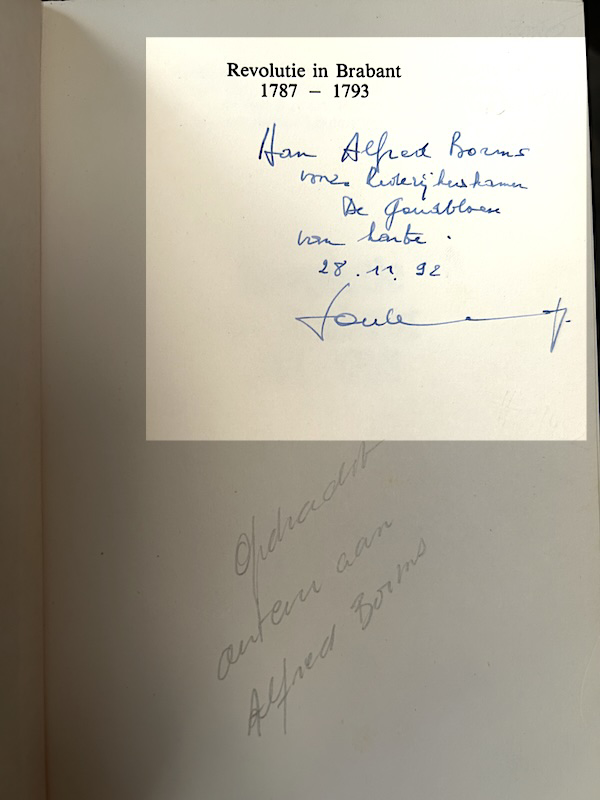 Revolutie in Brabant
1787 – 1793
Aan Alfred Borms
voor Rederijkerskamer
De Goudbloem
van harte.
28.11.92
Opdracht
auteur aan
Alfred Borms